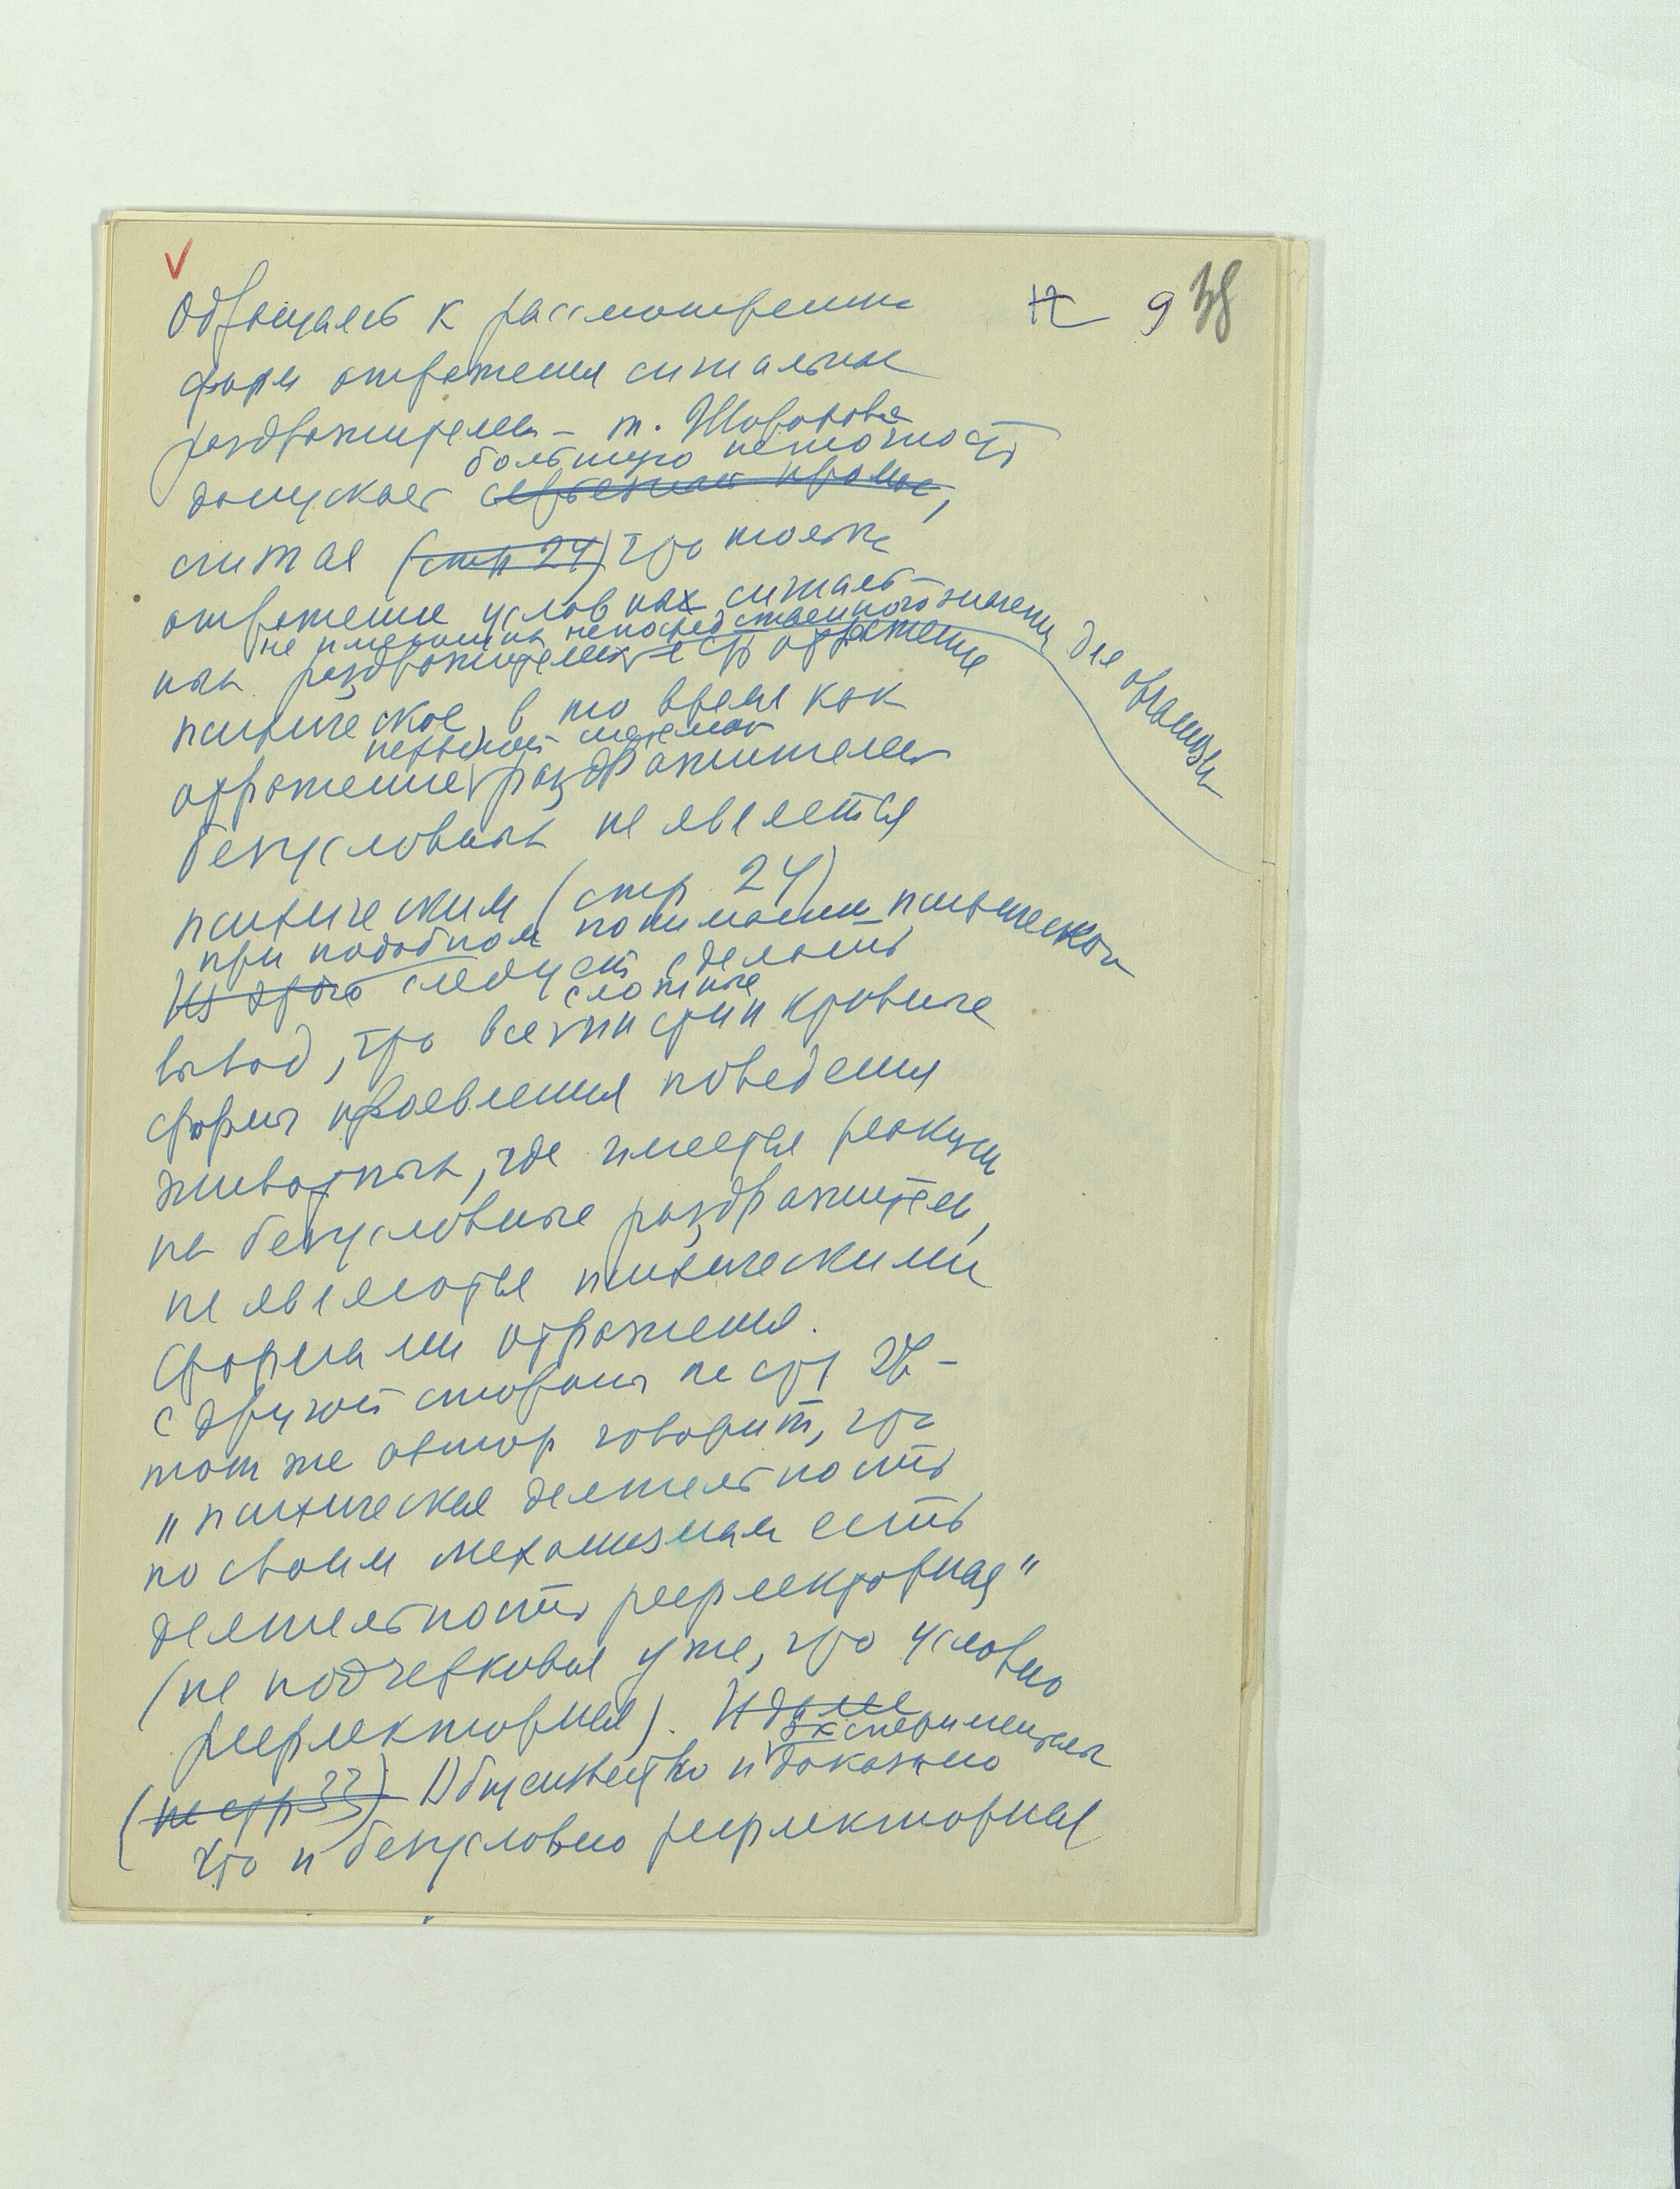 Обращаясь к рассмотрению 9 38
форм отражения сигнальных
раздражителей – т. Шорохова
большую неточность
допускает серьезный промах,
считая (стр 24) что только
отражение условных сигналь-
не имеющих непосредственного значения для организма
ных раздражителей есть отражение
психическое, в то время как
нервной системой
отражение раздражителей
безусловных не является
психическим (стр. 24)
при подобном понимании психического
Из этого следует сделать
сложные
вывод, что все инстинктивные
формы проявления поведения
животных, где имеется реакция
на безусловные раздражители,
не являются психическими
формами отражения.
С другой стороны на стр
тот же автор говорит, что
„психическая деятельность
по своим механизмам есть
деятельность рефлекторная"
(не подчеркивая уже, что условно
рефлекторная). И далее
экспериментально
(на стр 33) Общеизвестно и доказано
что и безусловно рефлекторная